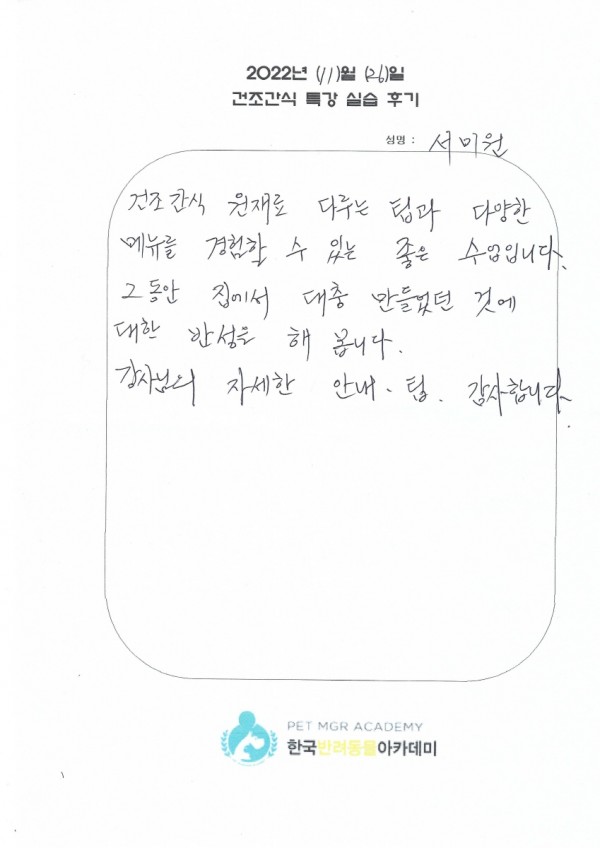 2022년 (11)월 (26)일
건조간식 특강 실습 후기
성명 : 서미원
건조간식 원재료 다루는 팁과 다양한
메뉴를 경험할 수 있는 좋은 수업입니다.
그동안 집에서 대충 만들었던 것에
대한 반성을 해 봅니다.
강사님의 자세한 안내·팁. 감사합니다.
PET MGR ACADEMY
한국반려동물아카데미